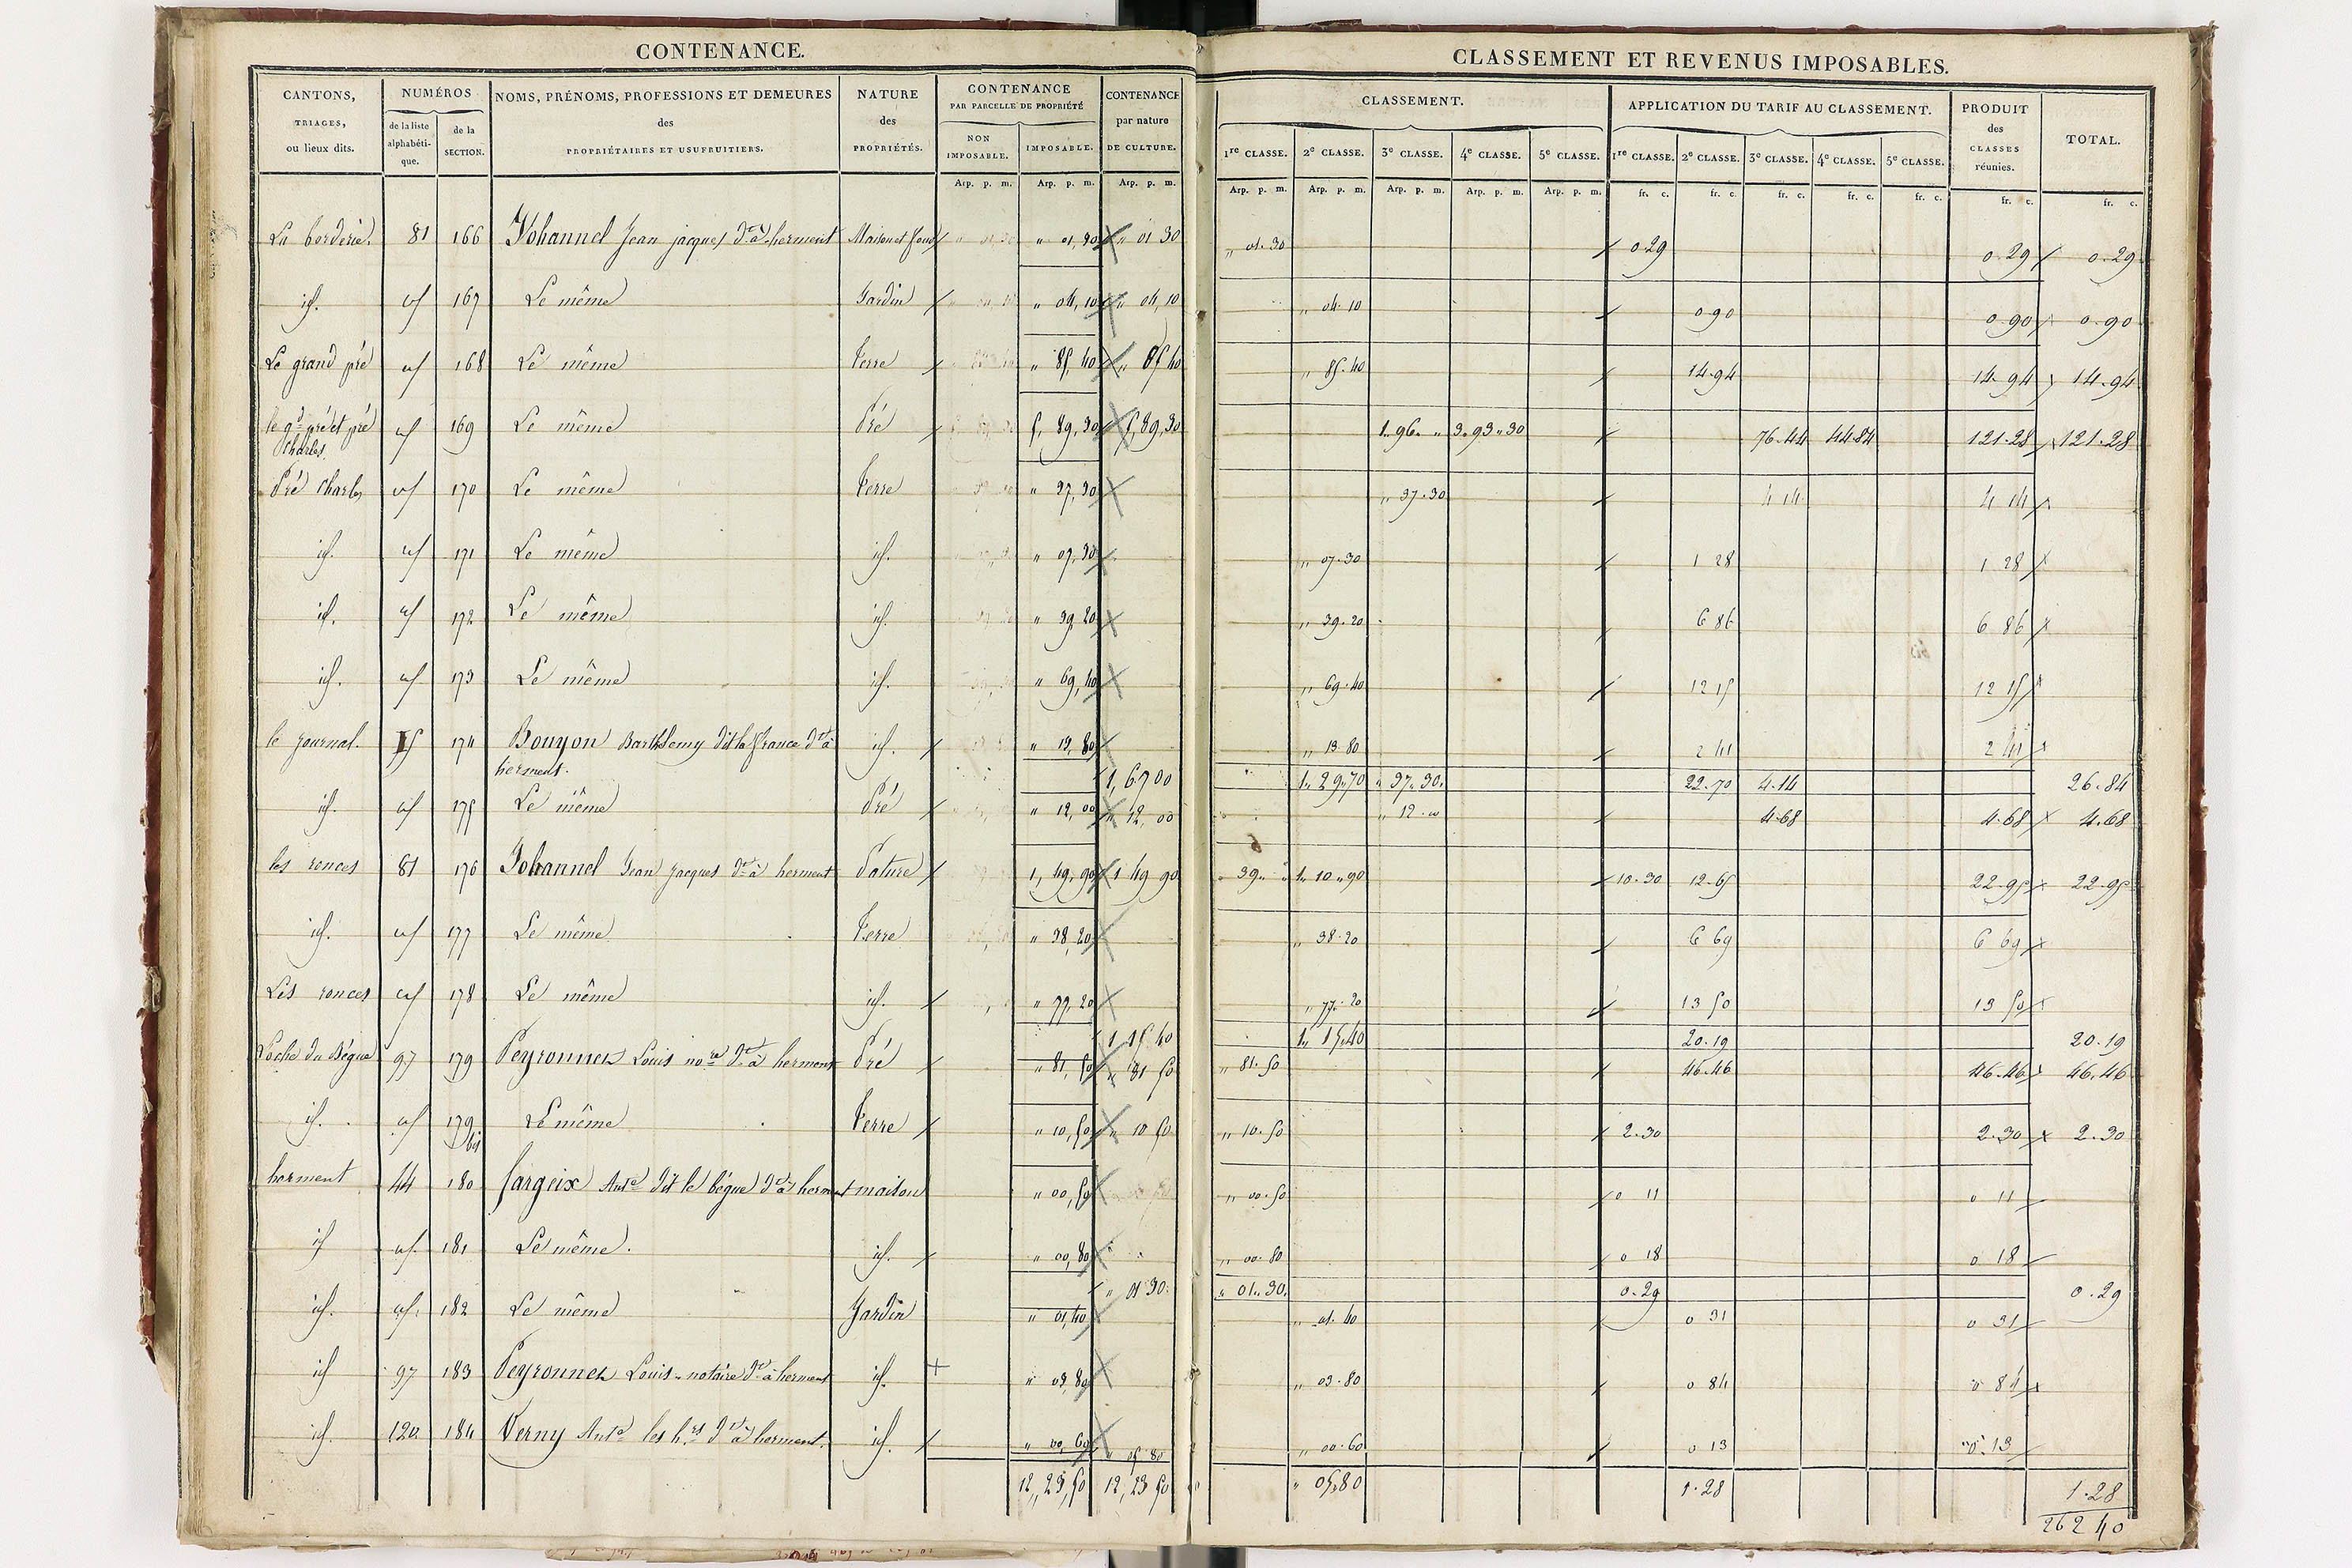 CONTENANCE.
CANTONS, TRIAGES, ou lieux dits.
NUMÉROS de la liste alphabétique. de la SECTION.
NOMS, PRÉNOMS, PROFESSIONS ET DEMEURES des PROPRIÉTAIRES ET USUFRUITIERS.
NATURE des PROPRIÉTÉS.
CONTENANCE PAR PARCELLE DE PROPRIÉTÉ NON IMPOSABLE. IMPOSABLE.
CONTENANCE par nature DE CULTURE.
Arp. p. m. Arp. p. m. Arp. p. m.
CLASSEMENT ET REVENUS IMPOSABLES.
CLASSEMENT.
1re CLASSE. 2e CLASSE. 3e CLASSE. 4e CLASSE. 5e CLASSE.
APPLICATION DU TARIF AU CLASSEMENT.
1re CLASSE. 2e CLASSE. 3e CLASSE. 4e CLASSE. 5e CLASSE.
PRODUIT des CLASSES réunies.
TOTAL.
Arp. p. m. Arp. p. m. Arp. p. m. Arp. p. m. Arp. p. m. fr. c. fr. c. fr. c. fr. c. fr. c. fr. c. fr. c.
La borderie. 81 166 Johannel Jean jacques dt à herment Maison et fond " 01,30 " 01 30 " 01.30 0.29 0.29 0.29
id. id 167 Le même Jardin " 04,10 " 04,10 " 04.10 0 90 0.90 0.90
Le grand pré id 168 Le même Terre " 85,40 " 85 40 " 85.40 14.94 14.94 14.94
le gd pré et pré Charles. id 169 Le même Pré 5, 89,30 5,89,30 1.96. " 3.93.30 76.44 44.84 121.28 121.28
Pré Charles id 170 Le même Terre " 37,30 " 37.30 4 14 4 14
id. id 171 Le même id. " 07,30 " 07.30 1 28 1 28
id. id 172 Le même id. " 39,20 " 39.20 6 86 6 86
id. id 173 Le même id. " 69,40 " 69.40 12 15 12 15
le journal. 174 Bouyon Barthlemy dit la france dt à herment. id. " 13,80 " 13.80 2 41 2 41
1, 67 00 1. 29.70 " 37.30. 22.70 4.14 26.84
id. id 175 Le même Pré " 12,00 " 12, 00 " 12.00 4.68 4.68 4.68
les ronces 81 176 Johannel Jean Jacques dt à herment Pature 1, 49,90 1 49 90 " 39. " 1. 10.90 10.30 12.65 22.95 22.95
id. id 177 Le même Terre " 38,20 " 38.20 6 69 6 69
Les ronces id 178 Le même id. " 77,20 " 77.20 13 50 13 50
1 15 40 1. 15.40 20.19 20.19
97 179 Peyronnet Louis nore dt à herment Pré " 81,50 " 81 50 " 81.50 46.46 46.46 46.46
id. id 179 bis Le même Terre " 10,50 " 10 50 " 10.50 2.30 2.30 2.30
herment 44 180 fargeix Ante dit le bégue dt à herment maison " 00,50 " 00.50 0 11 0 11
id id. 181 Le même. id. " 00,80 " 00.80 0 18 0 18
" 01 30. " 01.30. 0.29 0.29
id. id. 182 Le même Jardin " 01,40 " 01.40 0 31 0 31
id 97 183 Peyronnet Louis notaire dt à herment id. " 03,80 " 03.80 0 84 0 84
id. 120 184 Verny Ante les hrs dt à herment. id. " 00,60 " 05 80 " 00.60 0 13 0.13
12, 23,50 12, 23 50 " 05.80 1.28 1.28
262 40